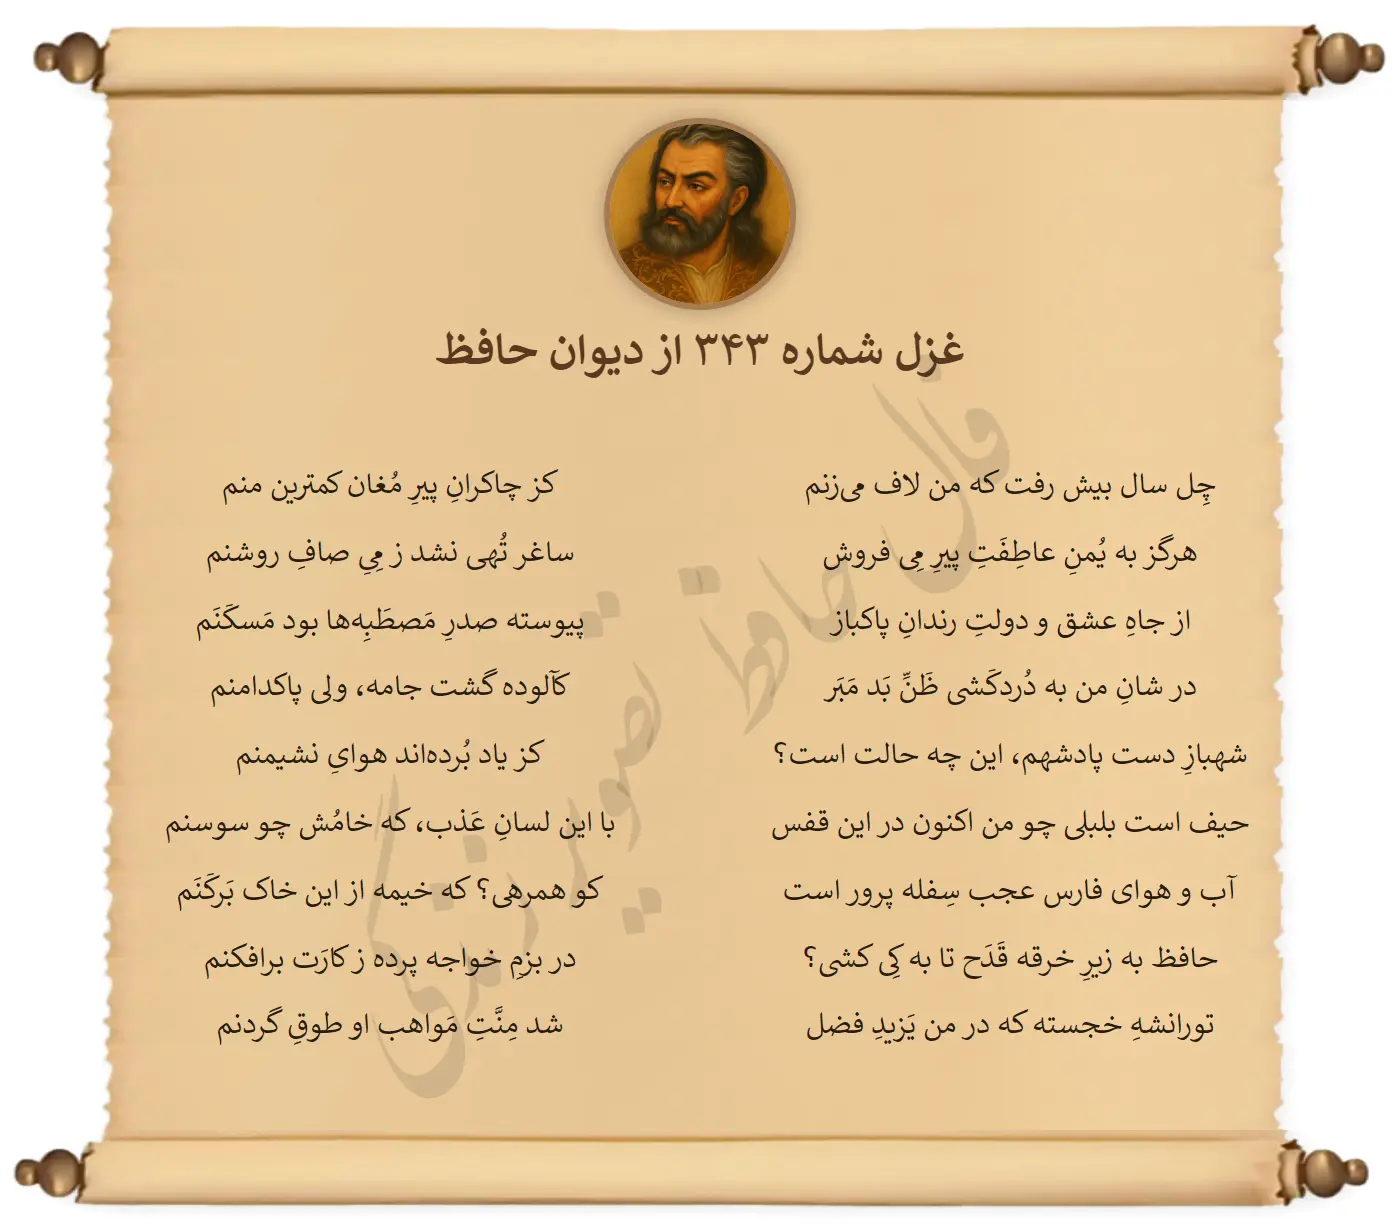 غزل شماره ۳۴۳ از دیوان حافظ
چِل سال بیش رفت که من لاف می‌زنم
کز چاکرانِ پیرِ مُغان کمترین منم
هرگز به یُمنِ عاطِفَتِ پیرِ مِی فروش
ساغر تُهی نشد ز مِیِ صافِ روشنم
از جاهِ عشق و دولتِ رندانِ پاکباز
پیوسته صدرِ مَصطَبِه‌ها بود مَسکَنَم
در شانِ من به دُردکَشی ظَنِّ بَد مَبَر
کآلوده گشت جامه، ولی پاکدامنم
شهبازِ دست پادشهم، این چه حالت است؟
کز یاد بُرده‌اند هوایِ نشیمنم
حیف است بلبلی چو من اکنون در این قفس
با این لسانِ عَذب، که خامُش چو سوسنم
آب و هوای فارس عجب سِفله پرور است
کو همرهی؟ که خیمه از این خاک بَرکَنَم
حافظ به زیرِ خرقه قَدَح تا به کِی کشی؟
در بزمِ خواجه پرده ز کارَت برافکنم
تورانشهِ خجسته که در من یَزیدِ فضل
شد مِنَّتِ مَواهب او طوقِ گردنم
فال حافظ تصویر زندگی